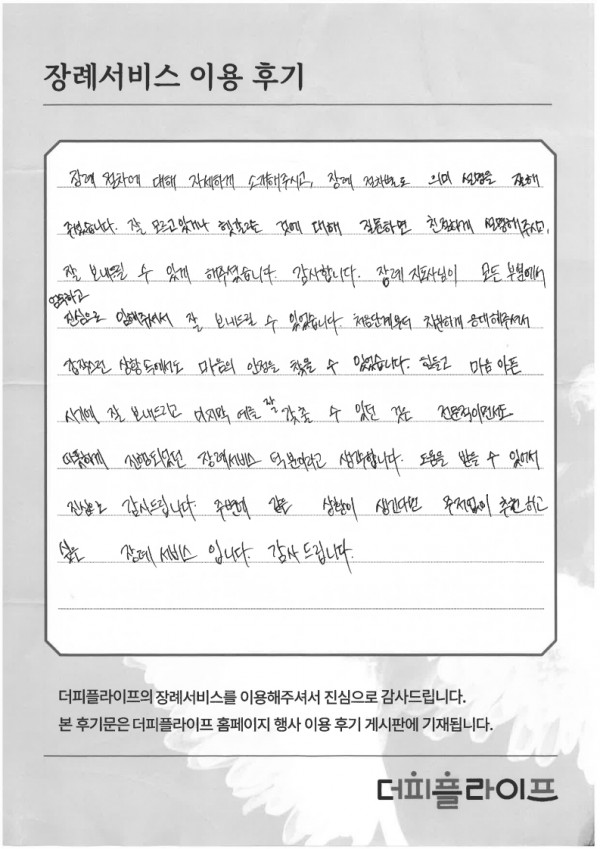 장례서비스 이용 후기
장례 절차에 대해 자세하게 소개해주시고, 장례 절차별로 의미 설명을 잘해
주셨습니다. 잘 모르고 있거나 헷갈리는 것에 대해 질문하면 친절하게 설명해주시고,
잘 보내드릴 수 있게 해주셨습니다. 감사합니다. 장례 지도사님이 모든 부분에서
엄숙하고
진심으로 임해주셔서 잘 보내드릴 수 있었습니다. 처음단계부터 차분하게 응대해주셔서
갑작스런 상황 속에서도 마음의 안정을 찾을 수 있었습니다. 힘들고 마음 아픈
시기에 잘 보내드리고 마지막 예를 잘 갖출 수 있던 것은 전문적이면서도
따뜻하게 진행되었던 장례서비스 덕분이라고 생각합니다. 도움을 받을 수 있어서
진심으로 감사드립니다. 주변에 같은 상황이 생긴다면 주저없이 추천하고
싶은 장례 서비스 입니다. 감사 드립니다.
더피플라이프의 장례서비스를 이용해주셔서 진심으로 감사드립니다.
본 후기문은 더피플라이프 홈페이지 행사 이용 후기 게시판에 기재됩니다.
더피플라이프